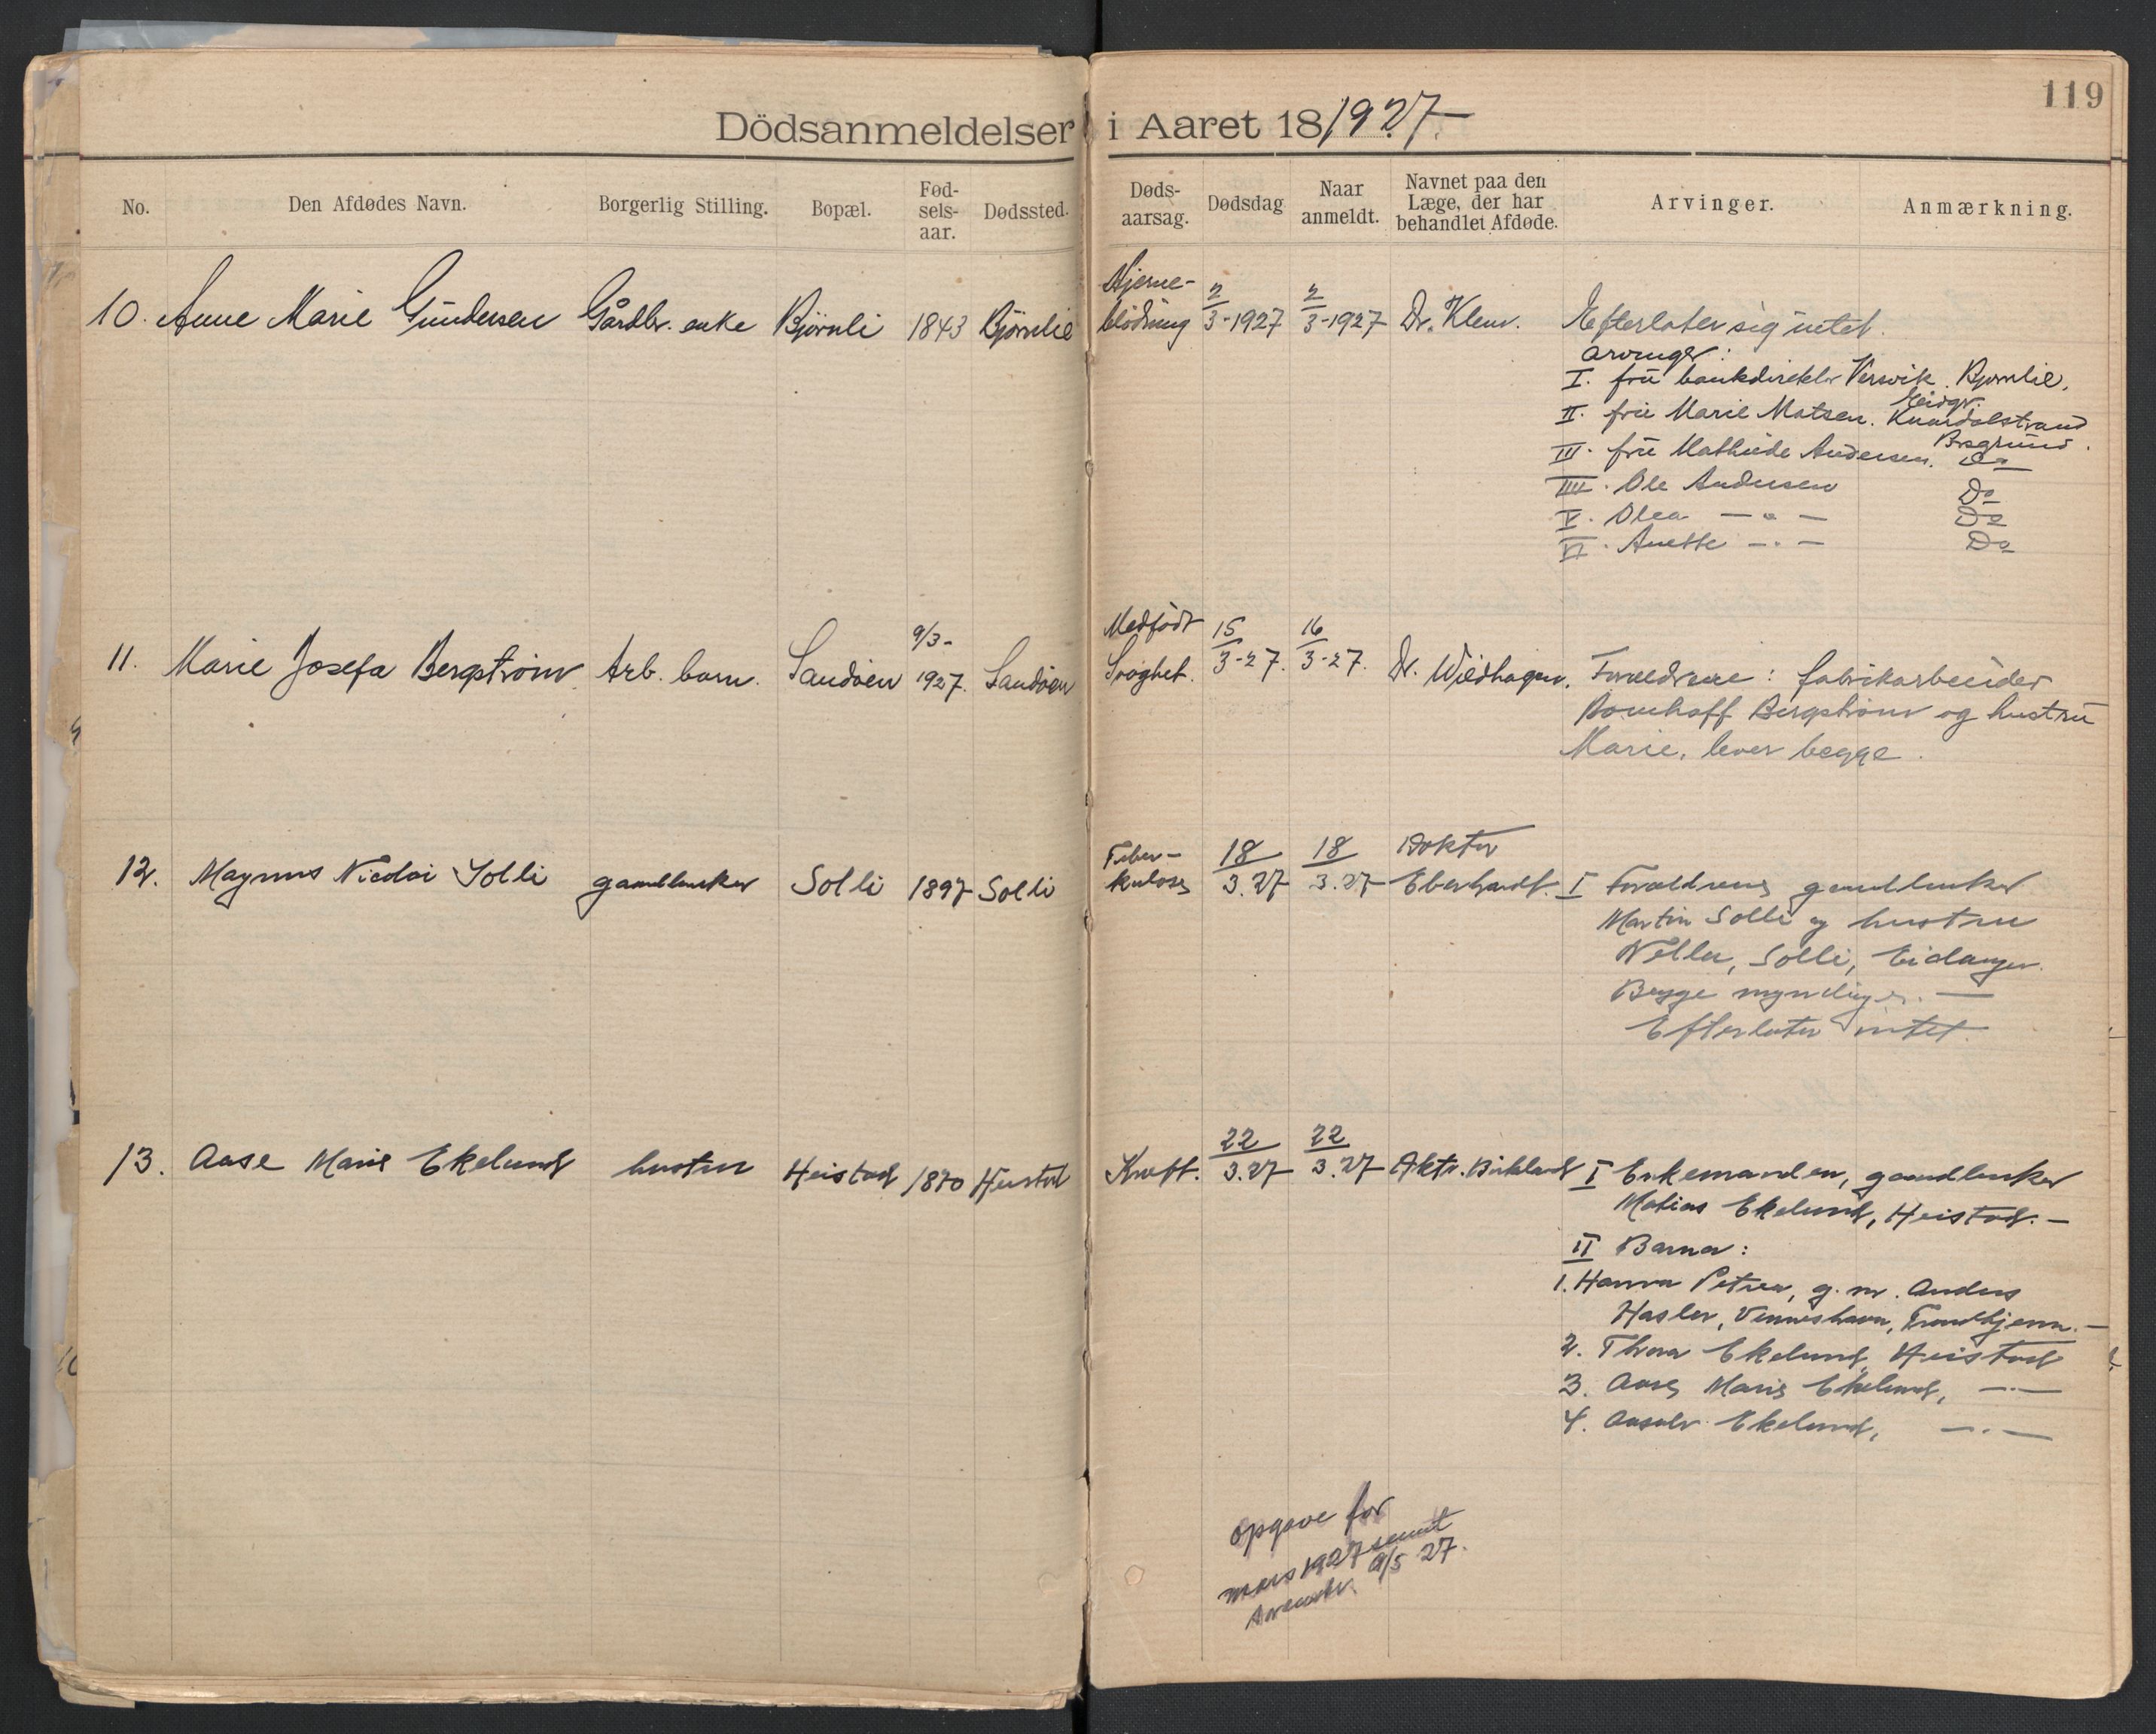 119
Dödsanmeldelser i Aaret 18/1927.
No. Den Afdødes Navn. Borgerlig Stilling. Bopæl. Fød-sels-aar. Dødssted. Døds-aarsag. Dødsdag Naar anmeldt. Navnet paa den Læge, der har behandlet Afdøde. Arvinger. Anmærkning.
Hjerne-
10. Anne Marie Gundersen Gårdbr. enke Björnli 1843 Björnlie blödning 2/3-1927 2/3-1927 Dr. Klem. Efterlater sig intet.
Arvinger:
I. frü bankdirektör Versvik. Bjørnlie,
Eidgr.
II. frü Marie Matsen. Knardalstrand
Porsgrund.
III. frü Mathilde Andersen. Do
IIII. Ole Andersen Do
V. Olea — " — Do
VI. Anette — " — Do
9/3- Medfödt
11. Marie Josefa Bergström Arb. barn. Sandöen 1927. Sandöen Svaghet. 15/3-27. 16/3-27. Dr. Wildhagen. Foreldrene: fabrikarbeider
Bergström og hustrü
Marie, lever begge.
Tuber- Doktor
12. Magnus Nicolai Solli gaardbruker Solli 1897 Solli kulose 18/3.27 18/3.27 Eberhardt. I Forældrene gaardbruker
Martin Solli og hustru
Solli, Eidanger.
Begge myndige. —
Efterlater intet.
13. Aase Marie Ekelund hustru Heistad 1870 Heistad Kreft. 22/3.27 22/3.27 Dktr. Birkeland I Enkemanden, gaardbruker
Matias Ekelund, Heistad. —
II Barna:
1. Hanna Petrea, g. m. Anders
Hasler, Trondhjem. —
2. Thora Ekelund, Heistad
3. Aase Marie Ekelund, — " —
4. Ekelund, — " —
Opgave for
mars 1927 sendt
9/5 27.